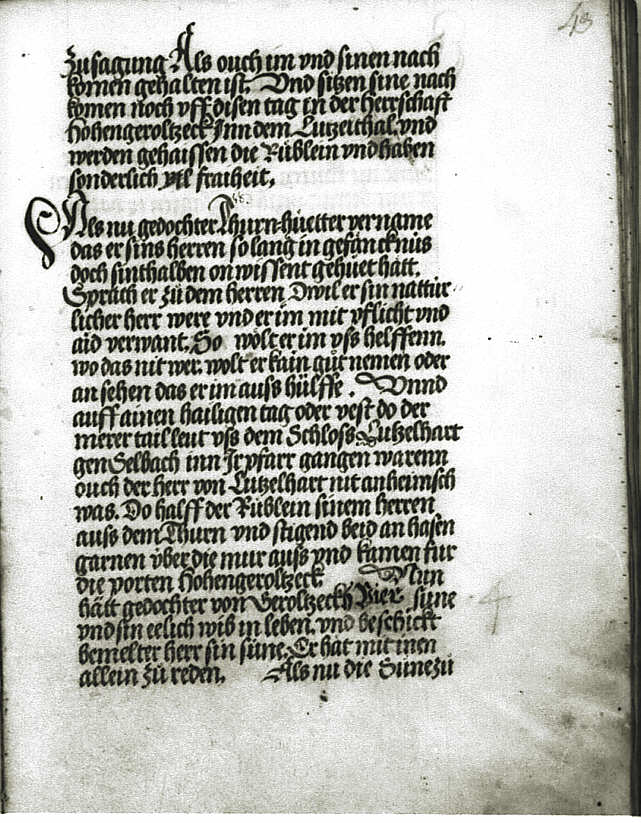 43
zusagung Als ouch im vnd sinen nach
komen gehalten ist. Vnd sitzen sine nach
komen noch vff disen tag in der herrschaft
Hohengeroltzeck Inn dem Lutzeithal. vnd
werden gehaissen die Rüblein vnd haben
sonderlich vil fraiheit,
Als nu gedochter Thurn-hüetter vername
das er sins herren so lang in gefäncknüs
doch sinthalben on wissent gehuet hatt.
Sprach er zů dem herren Dwil er sin nattür
licher herr were vnd er im mit pflicht vnd
aid verwant. So wolt er im vss helffenn.
wo das nit wer. wolt er kain gůt nemen oder
an sehen das er im auss hülffe. Vnnd
auff ainen hailigen tag oder vest do der
merer tail leut vss dem Schloss Lützelhart
gen Selbach inn Ir pfarr gangen warenn
ouch der herr von Lützelhart nit anheimsch
was. Do halff der Rüblein sinem herren
auss dem Thurn vnd stigend beid an hasen
garnen vber die mur auss vnd kamen für
die porten Hohengeroltzeck Nun
hätt gedochter von Geroltzeckh Vier süne
vnd sin eelich wib in leben. vnd beschickt
bemelter herr sin süne. Er hät mit inen
allein zů reden. Als nu die Süne zů
4